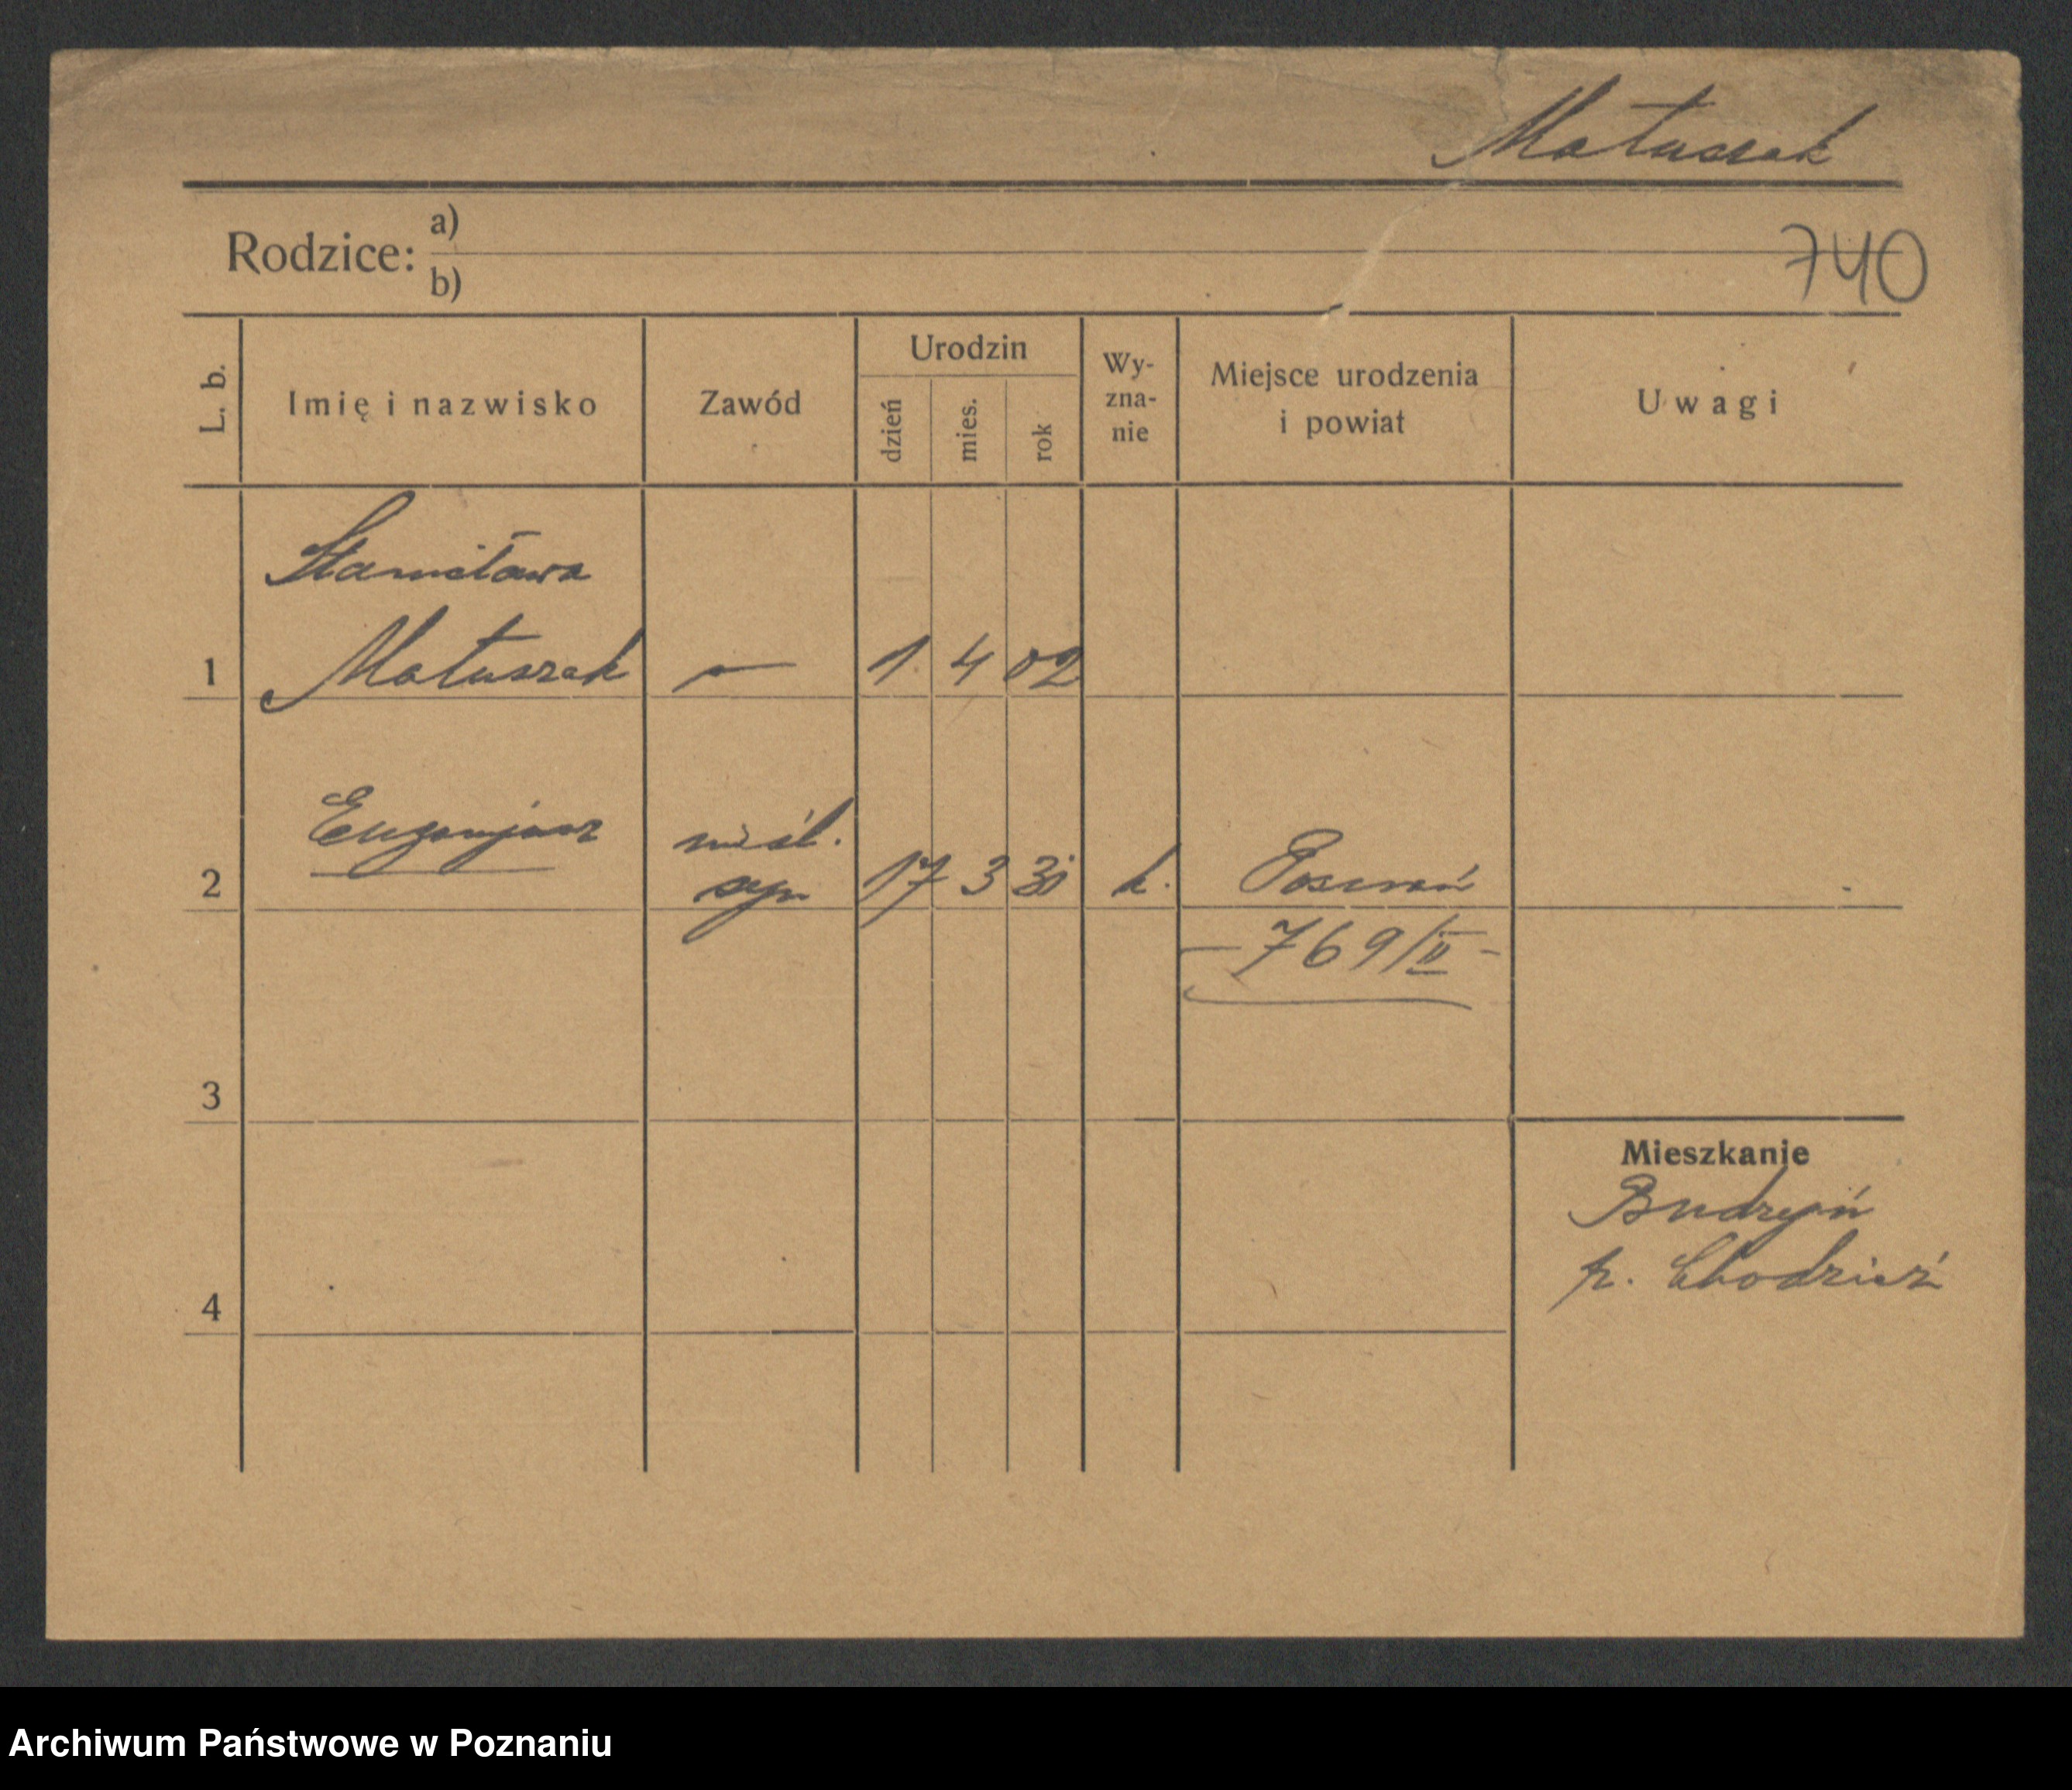 Matuszak
Rodzice: a)
b)
740
L. b.
Imię i nazwisko
Zawód
Urodzin
dzień
mies.
rok
Wy-
zna-
nie
Miejsce urodzenia
i powiat
Uwagi
Stanisława
1 Matuszak — 1. 4 02
Eugenjusz nieśl.
2 syn 17 3 31 k. Poznań
— 769/II —
3
Mieszkanie
Budzyń
p. Chodzież
4
Archiwum Państwowe w Poznaniu